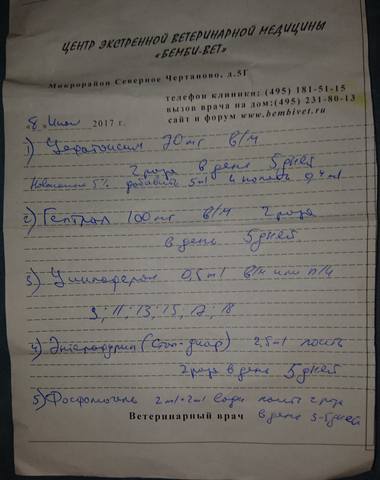 ЦЕНТР ЭКСТРЕННОЙ ВЕТЕРИНАРНОЙ МЕДИЦИНЫ
«БЕМБИ-ВЕТ»
Микрорайон Северное Чертаново, д.5Г
телефон клиники: (495) 181-51-15
вызов врача на дом:(495) 231-80-13
сайт и форум www.bembivet.ru
«8» Июля 2017 г.
1) Цефотоксим 70 mг в/м
2 раза в день 5 дней
Новокаина 5% добавить 5 ml и колоть 0,4 ml
2) Гептрал 100 mг в/м 2 раза
в день 5 дней
3) 0,5 ml в/м или п/к
9; 11; 13; 15; 17; 18
4) (Стоп-диар) 2,5 ml поить
2 раза в день 5 дней
5) 2 ml + 2 ml воды поить 2 раза
в день 3-5 дней
Ветеринарный врач